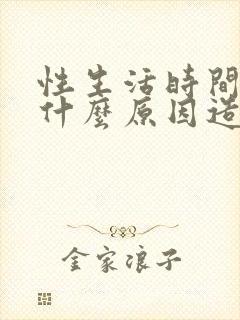 性生活時間
什麼原因造
金家浪子